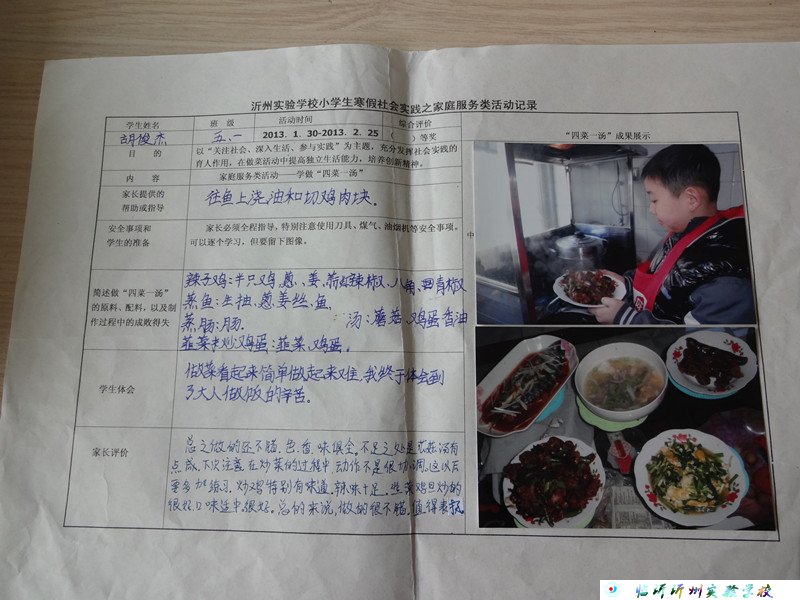 沂州实验学校小学生寒假社会实践之家庭服务类活动记录
学生姓名 班 级 活动时间 综合评价
胡俊杰 五.一 2013.1.30-2013.2.25 （ ）等奖 “四菜一汤”成果展示
目 的 以“关注社会、深入生活、参与实践”为主题，充分发挥社会实践的
育人作用，在做菜活动中提高独立生活能力，培养创新精神。
内 容 家庭服务类活动——学做“四菜一汤”
家长提供的
帮助或指导
往鱼上浇油和切鸡肉块。
安全事项和
学生的准备
家长必须全程指导，特别注意使用刀具、煤气、油烟机等安全事项。
可以逐个学习，但要留下图像。
简述做“四菜一汤”
的原料、配料，以及制
作过程中的成败得失
辣子鸡：半只鸡、葱、姜、辣椒、八角、青椒
蒸鱼：生抽、葱姜丝、鱼
蒸肠：肠. 汤：蘑菇、鸡蛋香油
韭菜炒鸡蛋：韭菜、鸡蛋。
学生体会
做菜看起来简单做起来难，我终于体会到
了大人做饭的辛苦。
家长评价
总之做的还不错.色.香.味俱全.不足之处是 汤有
点咸.下次注意在炒菜的过程中,动作不是很协调.这以后
要多加练习.炒鸡特别有味道.辣味十足.韭菜鸡蛋炒的
很好.口味适中很好。总的来说,做的很不错.值得表扬
中
临沂沂州实验学校